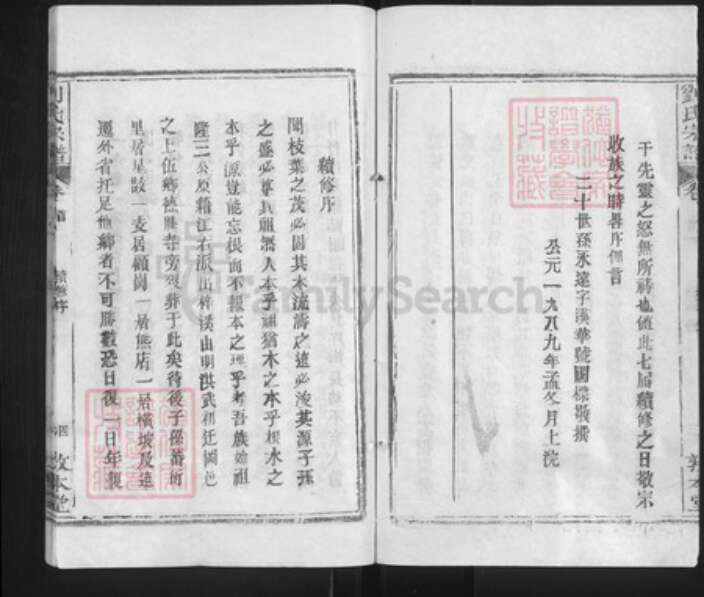 劉氏宗譜
干先靈之怒無所禱也值此七屆續修之日敬宗
收族之時畧序俚言
二十世孫永遠字漢華號國樑敬撰
公元一九八九年孟冬月上浣
敦本堂
續修序
聞枝葉之茂必固其木流濤之遠必浚其源子孫
之盛必尊其祖溯人本乎祖猶木之本乎根水之
本乎源豈能忘根而不報本之理乎考吾族始祖
隆三公原籍江右派出梓溪由明洪武初迁岡邑
之上伍鄉德勝寺旁歿葬于此矣待後子孫蕃衍
里居星散一支居顧岡一居熊店一居橫坡及遠
遷外省托足他鄉者不可勝數恐日後一日年
劉氏宗譜
續修序
敦本堂
FamilySearch